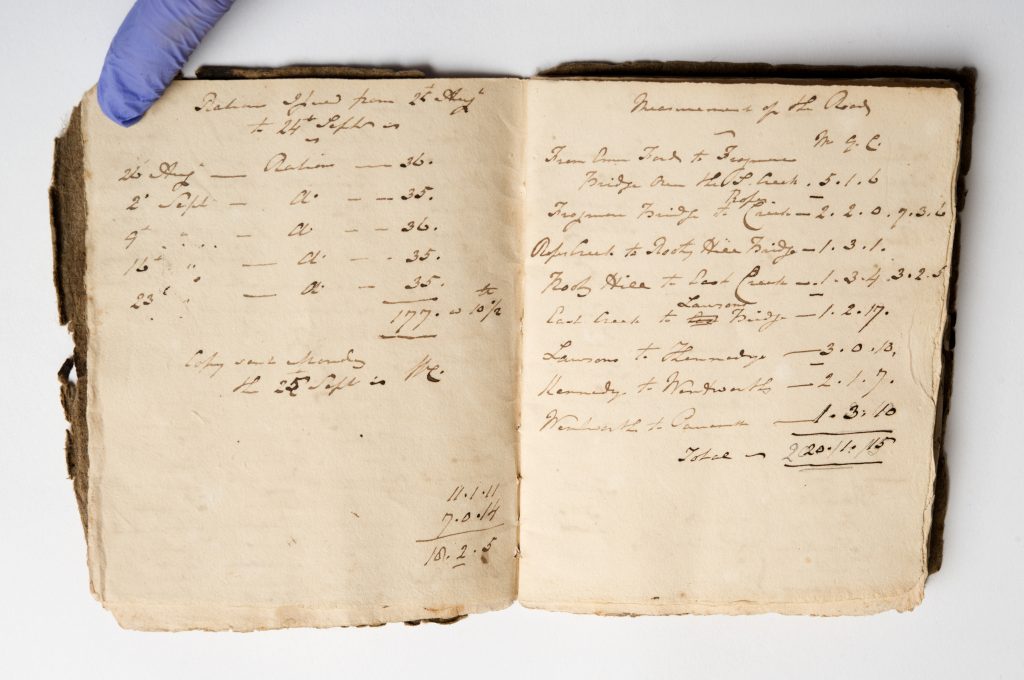 Ration Issued from 26th Augt
to 24th Septr is
26 Augt — Ration — 36.
2d Sept — do. — 35.
9th " " — do — 36.
16th " — do. 35.
23d " — do — 35.
177. 10 1/2
Copy sent Monday
the 25 Sept is
11.1.11
7.0.14
18.2.5
Measurement of the Road
M Q. C.
From Emu Ford to Frogmore
Bridge over the S. Creek. 5.1.6
Ropes
Frogmore Bridge to Creek — 2.2.0. 7.3.6
Ropes Creek to Rooty Hill Bridge — 1.3.1.
Rooty Hill to East Creek — 1.3.4. 3.2.5
Lawsons
East Creek to Bridge — 1.2.17.
Lawsons to — 3.0.13.
Kennedy to Wentworths — 2.1.7.
Wentworth to — 1.3.10
Total — 20.1.15